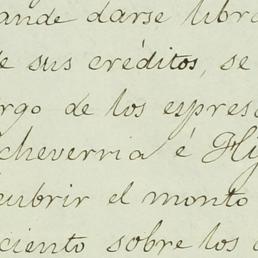 ande darse libra
e sus créditos, se
rgo de los expres
cheverria é Hij
cubrir el monto
ciento sobre los